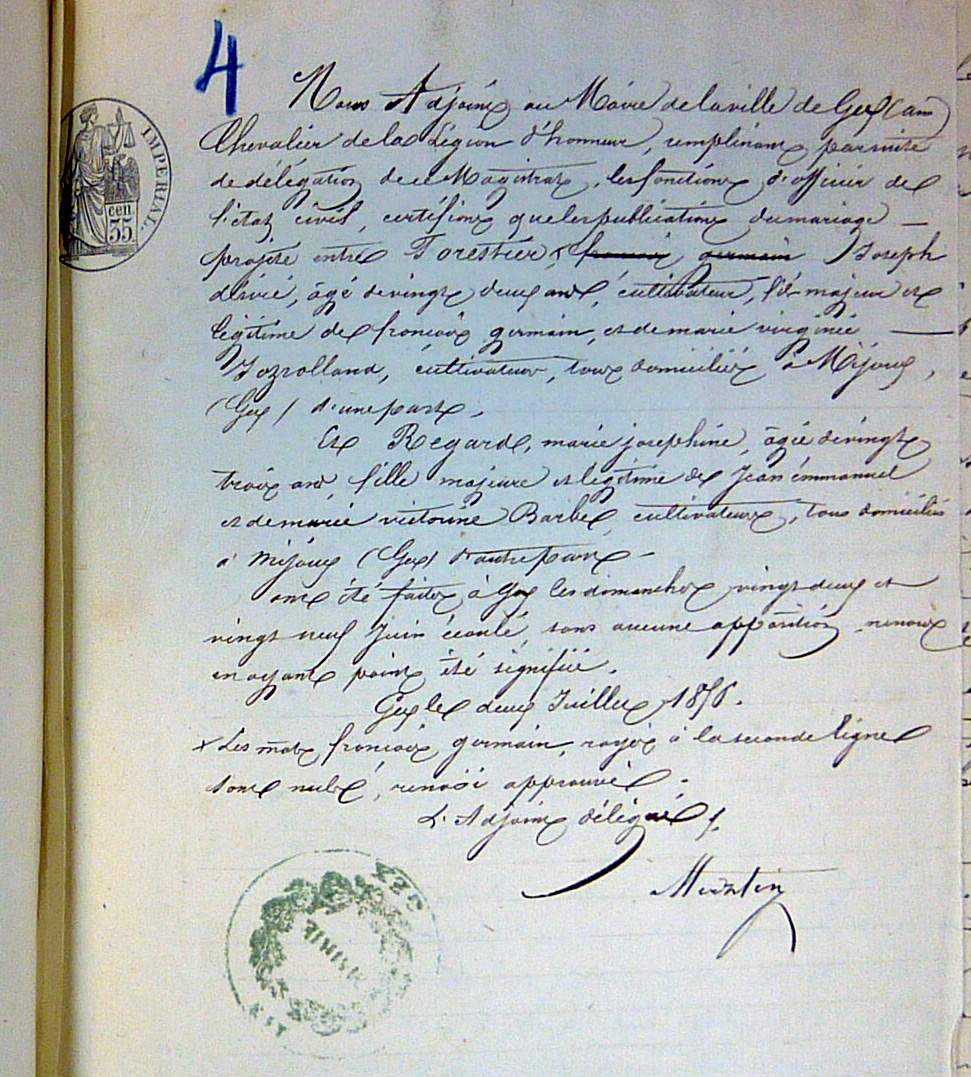 4
IMPERIAL.
35 cen
Nous Adjoint au Maire de la ville de Gex (ain)
Chevalier de la Légion d'honneur, remplissant par suite
de délégation de ce Magistrat, les fonctions d'officier de
l'état civil, certifions que les publications du mariage —
projeté entre Forestier, x françois germain Joseph
désiré, âgé de vingt deux ans, cultivateur, fils majeur et
légitime de françois germain, et de marie virginie —
cultivateurs, tous domiciliés à Mijoux,
(Gex) d'une part,
Et Regard, marie josephine, âgée de vingt
trois ans, fille majeure et légitime de Jean émmanuel
et de marie victorine Barbe, cultivateurs, tous domiciliés
à Mijoux (Gex) d'autre part —
ont été faites à Gex les dimanches vingt deux et
vingt neuf Juin écoulé, sans aucune opposition ne nous
en ayant point été signifiée.
Gex le deux Juillet 1856.
x Les mots françois germain, rayés à la seconde ligne
sont nuls, renvoi approuvé.
L'Adjoint délégué,